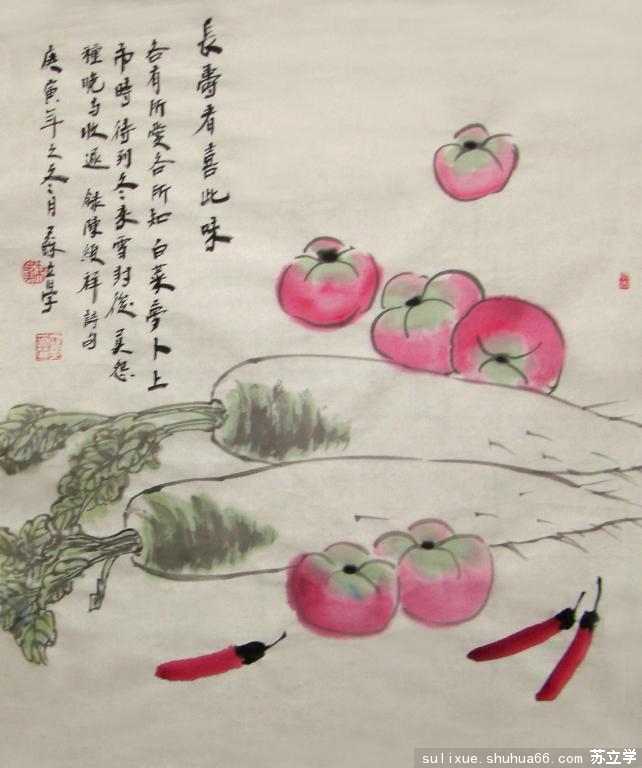 長壽者喜此味
各有所愛各所知白菜蘿卜上
市時待到冬来雪封後莫怨
種晚与收遲 錄陳便祥詩句
庚寅年之冬月 蘇立學
sulixue.shuhua66.com 苏立学